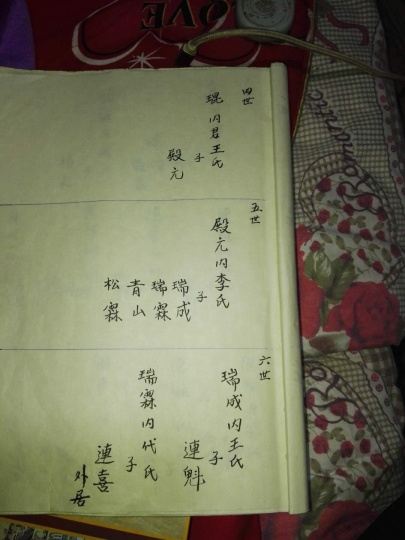 四世
琨内君王氏
子
殿元
五世
殿元内李氏
子
瑞成
瑞霖
青山
松霖
六世
瑞成内王氏
子
連魁
瑞霖内代氏
子
連喜
外居
LOVE
Romantic